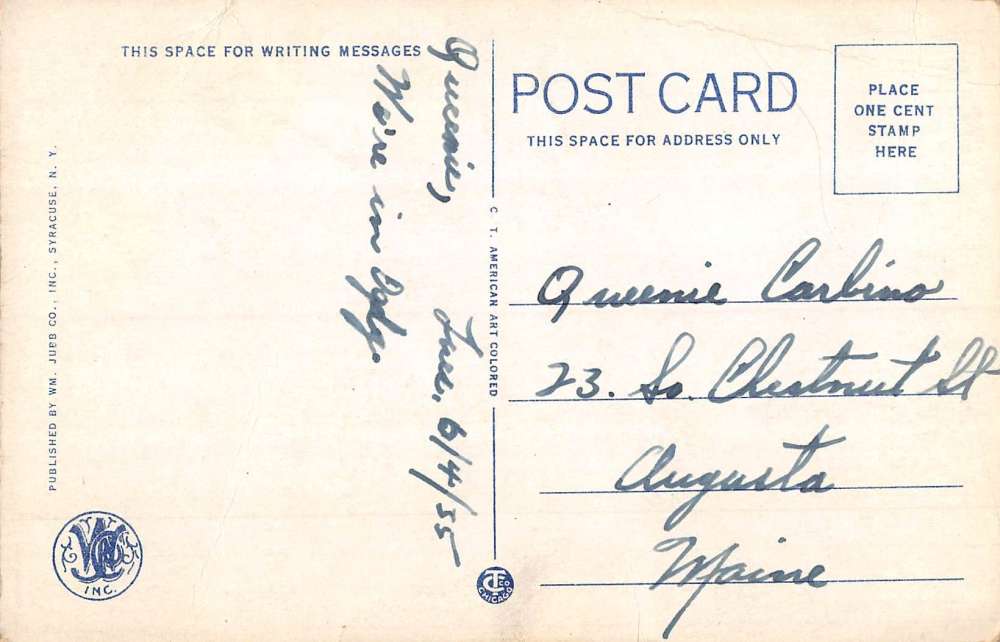 THIS SPACE FOR WRITING MESSAGES
Queenie,
Tues. 6/4/55
We're in Ogdg.
POST CARD
THIS SPACE FOR ADDRESS ONLY
PLACE
ONE CENT
STAMP
HERE
Queenie Carbino
23. So. Chestnut St
Augusta
Maine
C. T. AMERICAN ART COLORED
PUBLISHED BY WM. JUBB CO., INC., SYRACUSE, N. Y.
INC.
CT CO
CHICAGO